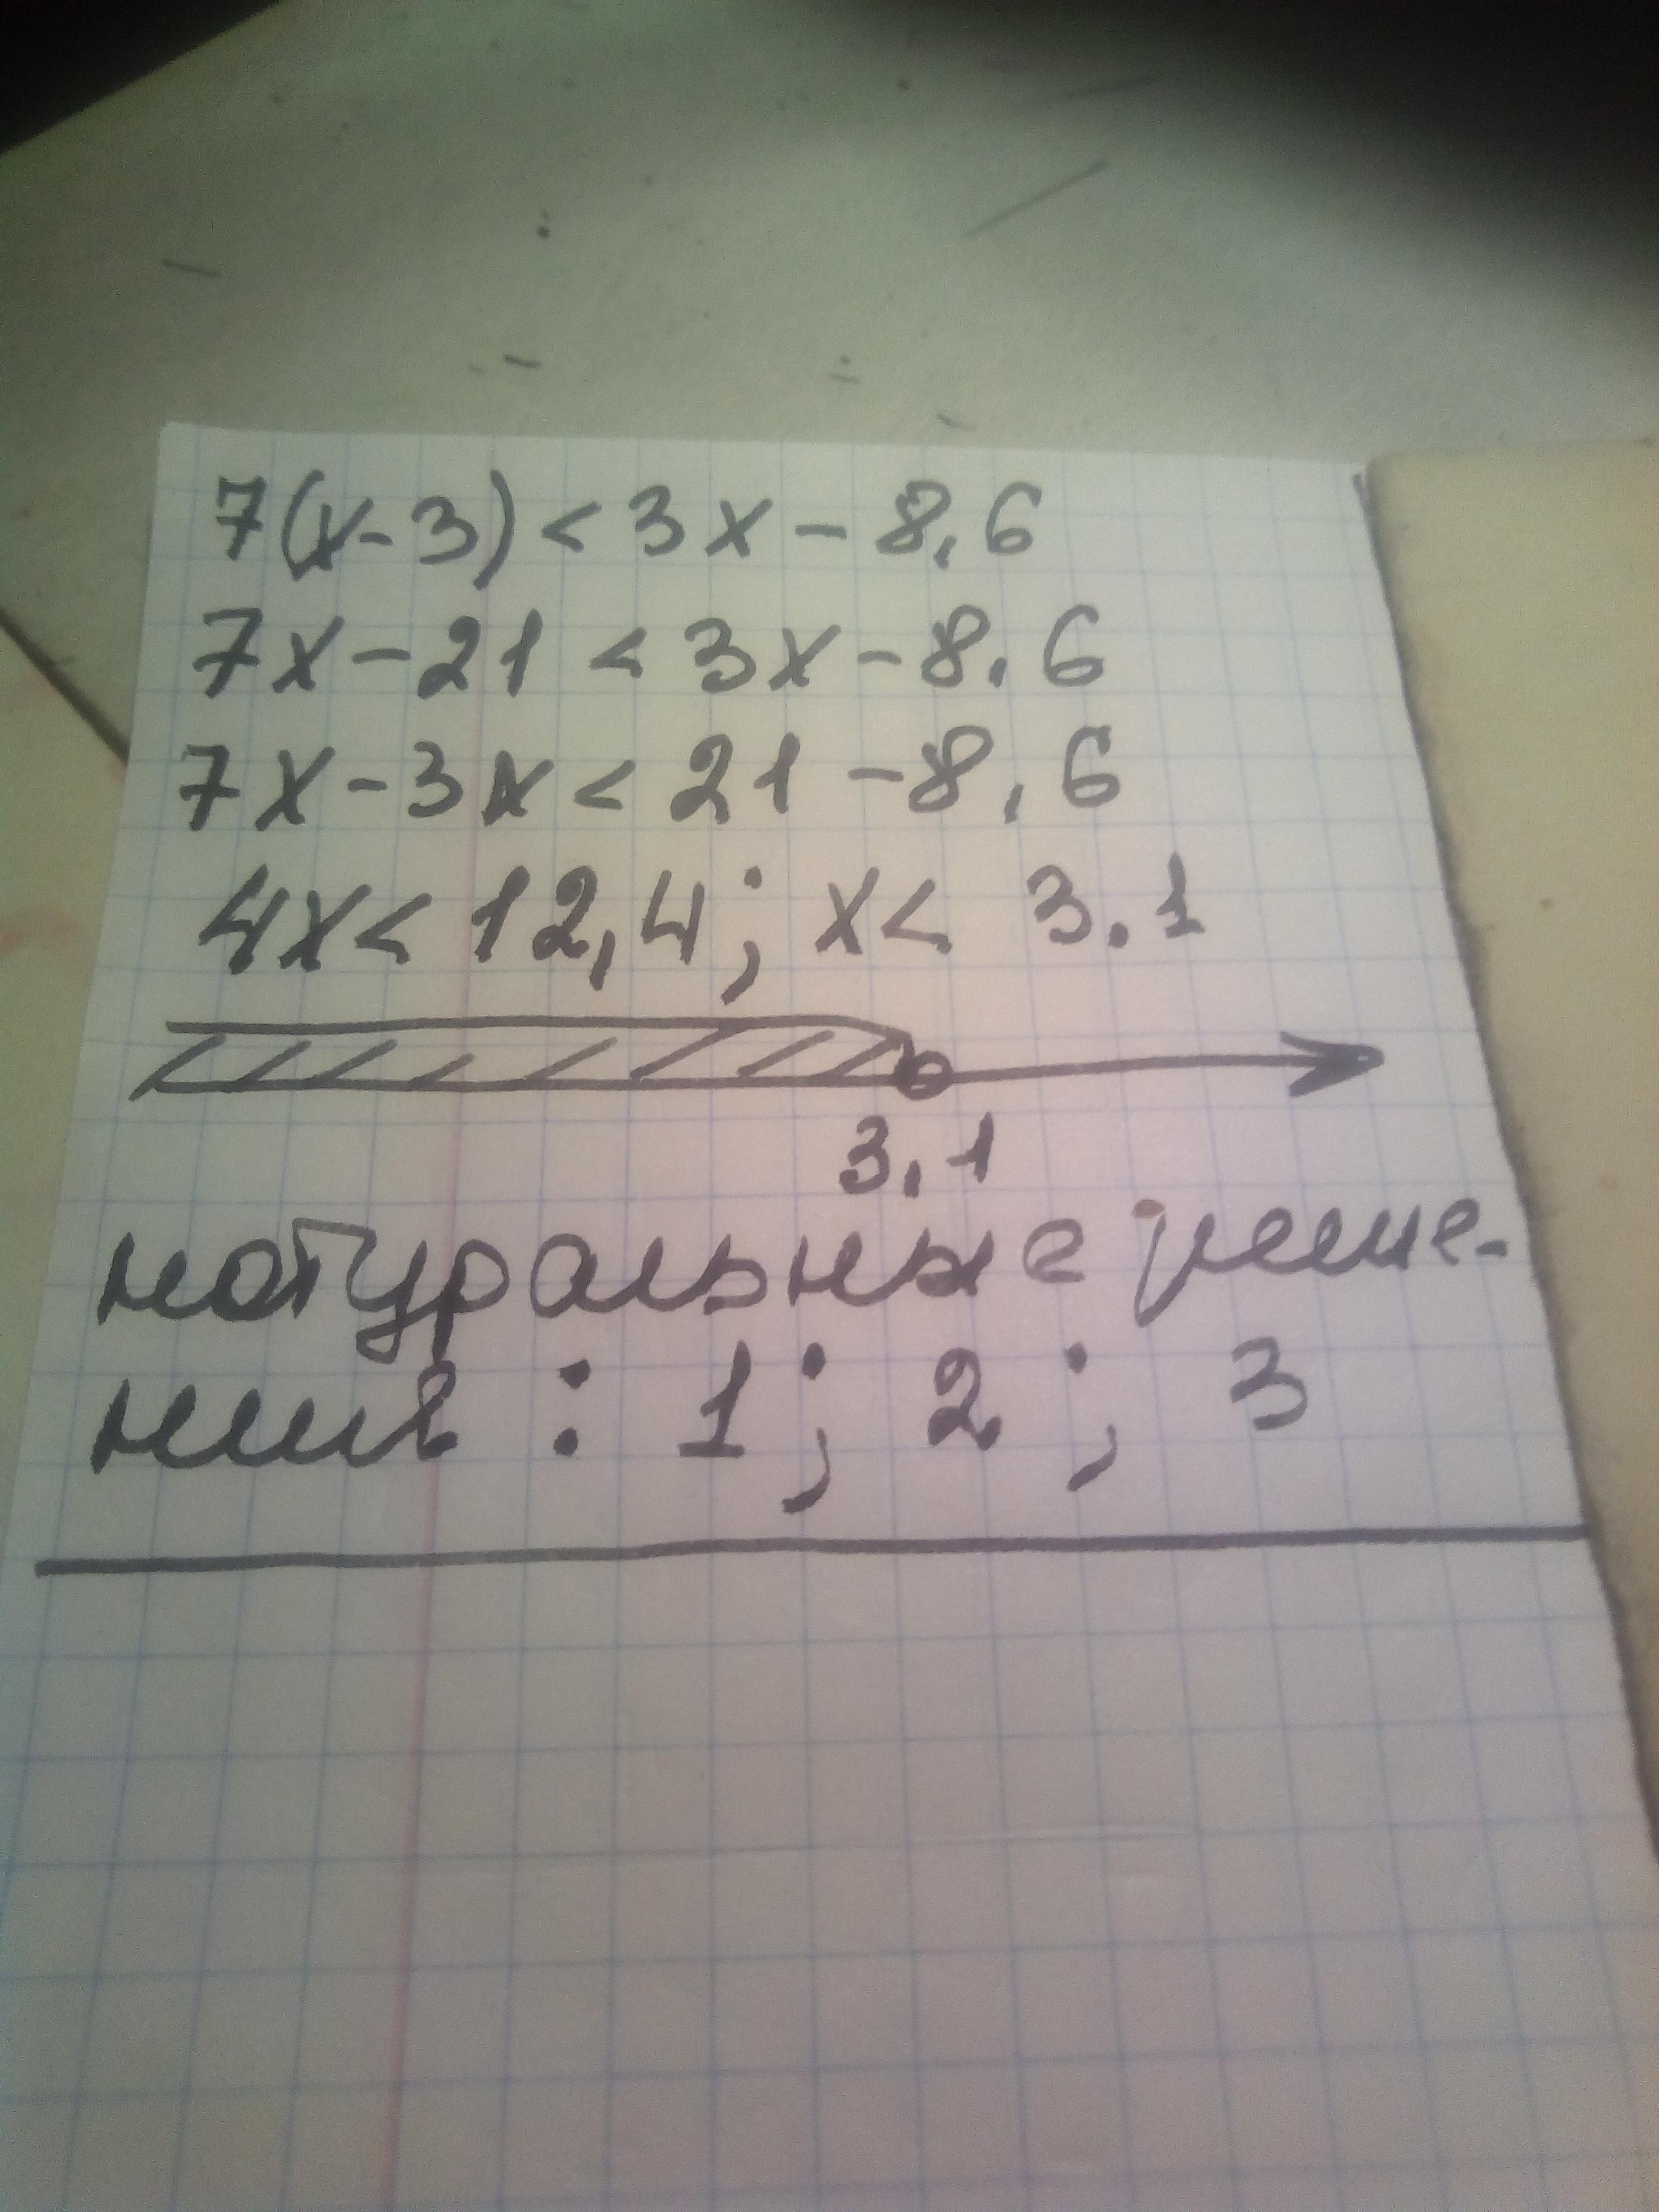 7(x-3) < 3x - 8,6
7x - 21 < 3x - 8,6
7x - 3x < 21 - 8,6
4x < 12,4; x < 3,1
3,1
натуральные реше-
ния: 1; 2; 3